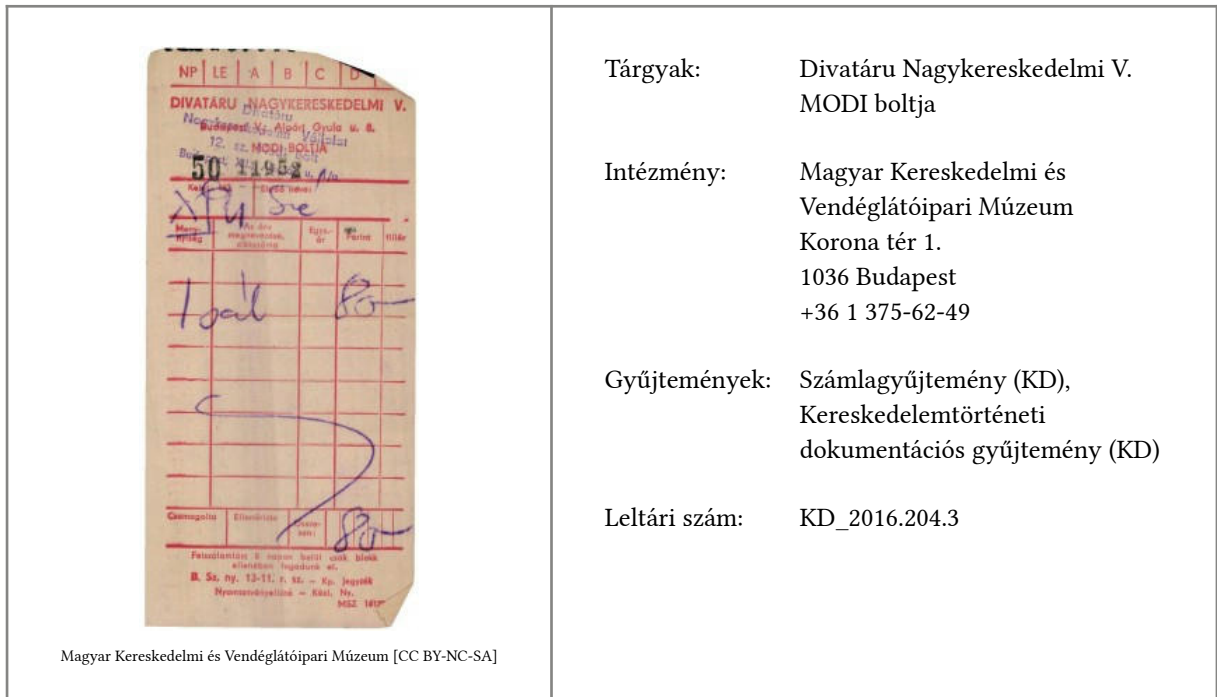 NP LE A B C D
DIVATÁRU NAGYKERESKEDELMI V.
Divatáru
Budapest V., Alpári Gyula u. 8.
Nagykereskedelmi Vállalat
MODI BOLTJA
12. sz. Modi Bolt
50 11952
Kelt
Eladó neve:
Meny-
nyiség
Az áru
megnevezése,
cikkszáma
Egys.-
ár
Forint
fillér
1 sál 80-
Csomagolta
Ellenőrizte
Össze-
sen:
80-
Felszólamlást 8 napon belül csak blokk
ellenében fogadunk el.
B. Sz. ny. 13-11. r. sz. – Kp. jegyzék
Nyomtatványellátó – Közl. Ny.
MSZ.
Magyar Kereskedelmi és Vendéglátóipari Múzeum [CC BY-NC-SA]
Tárgyak: Divatáru Nagykereskedelmi V.
MODI boltja
Intézmény: Magyar Kereskedelmi és
Vendéglátóipari Múzeum
Korona tér 1.
1036 Budapest
+36 1 375-62-49
Gyűjtemények: Számlagyűjtemény (KD),
Kereskedelemtörténeti
dokumentációs gyűjtemény (KD)
Leltári szám: KD_2016.204.3